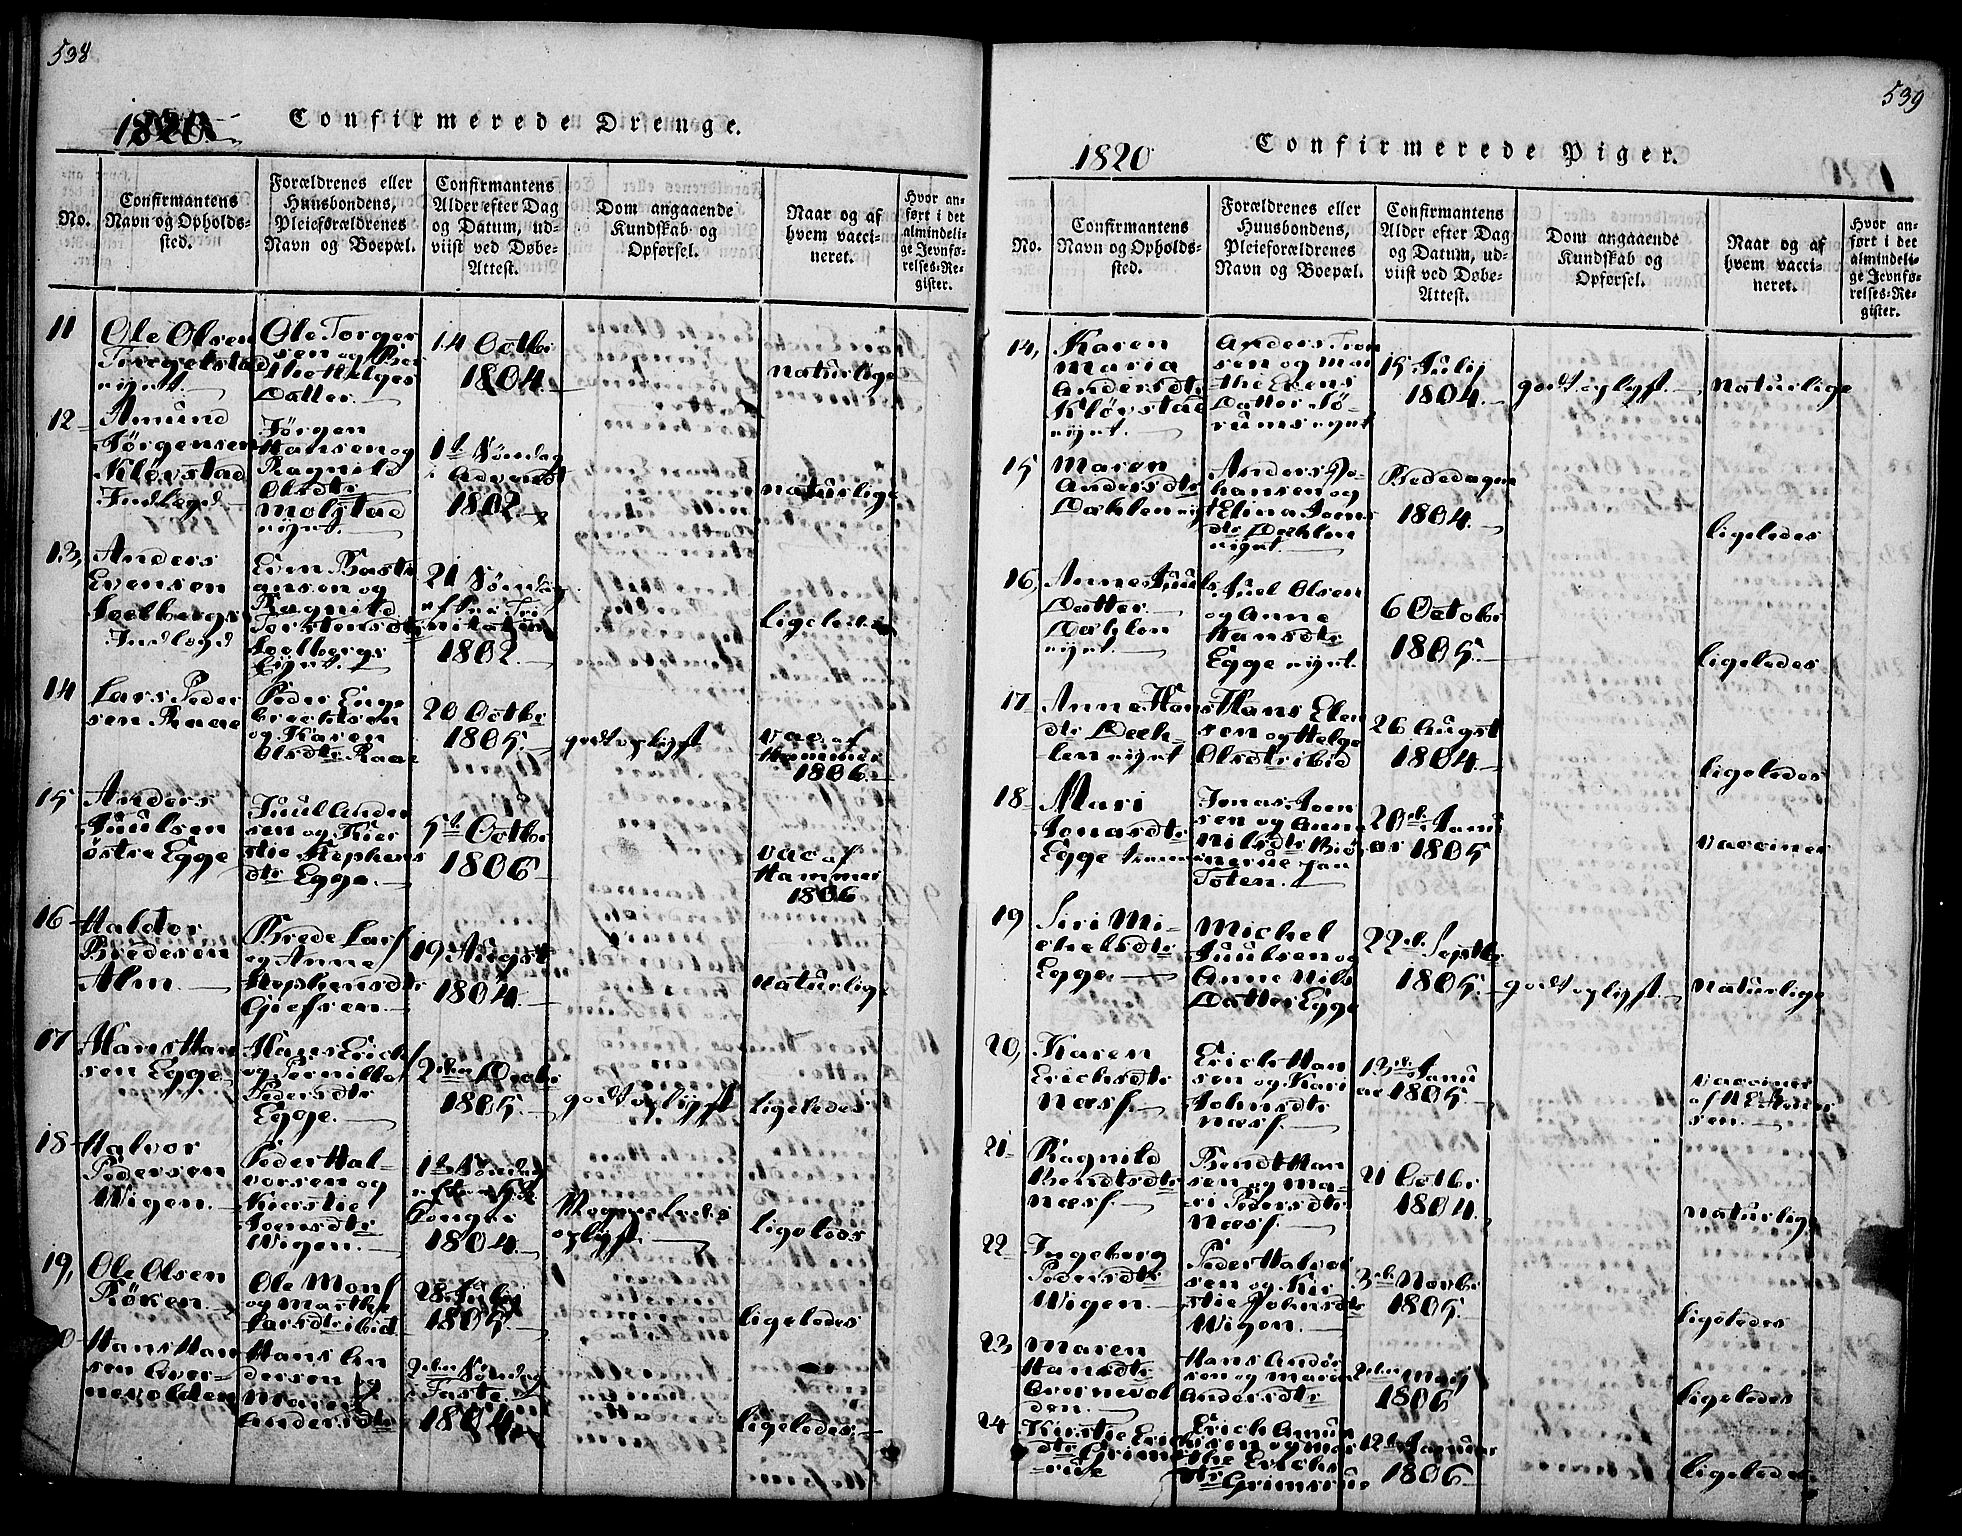 538
1820
Confirmerede Drenge.
No.
Confirmantens
Navn og Opholds-
sted.
Forældrenes eller
Huusbondens,
Pleieforældrenes
Navn og Boepæl.
Confirmantens
Alder efter Dag
og Datum, ud-
viist ved Døbe-
Attest.
Dom angaaende
Kundskab og
Opførsel.
Naar og af
hvem vacci-
neret.
Hvor an-
ført i det
almindeli-
ge Jevnfø-
relses-Re-
gister.
11
Ole Olsen
Ole Torger
sen og
Helges
Datter
14 Octbr
1804.
naturlige
12
Amund
Jørgensen
Kløvstad
Indlagd
Jørgen
Hansen og
Ragnild
Olsdtr
Molstad
1st Søndag
i Advendt
1802
naturlige
13,
Anders
Evensen
Indlagd
Even Bast
ansen og
Ragnild
Torstensdtr
21 Søndag
efter Tri
nitatis
1802.
ligeledes
14
Lars Peder
sen Raae
Peder Enge
brechtsen
og Karen
Olsdtr Raae
20 Octbr
1805.
godt oplyst
vac af
Hammer
1806.
15
Anders
Juulsen
østre Egge
Juul Ander
sen og Kier
stie Stephens
dtr Egge.
5t Octbr
1806
vac af
Hammer
1806
16
Haldor
Bredesen
Alm
Brede Lars
og Anne
Stephensdtr
Giefsen.
19 August
1804.
naturlige
17
Hans Han
sen Egge
Hans Erich
og Pernille
Pedersdtr
Egge.
2den Decbr
1805.
godt oplyst
ligeledes
18
Halvor
Pedersen
Wigen.
Peder Hal-
vorsen og
Kierstie
Joensdtr
Wigen.
1st Søndag
Konger
1804
Maaveledes
oplyst.
ligeleds
19,
Ole Olsen
Røken
Ole Mons
og Marthe
Larsdtr ibid
28 Julij
1805.
ligeledes
Hans Han
sen Qver-
nevolden
Hans An
dersen og
Maren
Andersdtr
2den Søndag
i Faste
1804
ligeledes
539
1820
Confirmerede Piger.
No.
Confirmantens
Navn og Opholds-
sted.
Forældrenes eller
Huusbondens,
Pleieforældrenes
Navn og Boepæl.
Confirmantens
Alder efter Dag
og Datum, ud-
viist ved Døbe-
Attest.
Dom angaaende
Kundskab og
Opførsel.
Naar og af
hvem vacci-
neret.
Hvor an-
ført i det
almindeli-
ge Jevnfø-
relses-Re-
gister.
14,
Karen
Maria
Andersdtr
Kløvstad
Anders Tron
sen og Mar
the Evens
Datter Jø-
15 Julij
1804.
godt oplyst
Naturlige
15
Maren
Andersdtr
Dæhlen
Anders Jo-
hansen og
Elina Joens
dtr Dæhlen
Bededagen
1804.
ligeledes
16,
Anne Juuls
Datter
Dæhlen
Juel Olsen
og Anne
Hansdtr
Egge
6 Octobr
1805.
ligeledes
17
Anne Hans
dtr Dæh-
len
Hans Elen
sen og Helge
Olsdtr ibid
26 Augst
1804.
ligeledes
18
Mari
Jonasdtr
Egge
Jonas Joen
sen og Anne
Nilsdtr
Toten.
20de Janu
ar 1805
vaccineret
19
Siri Mi-
chelsdtr
Egge.
Michel
Juulsen og
Anne Nils
Datter Egge
22de Septbr
1805.
godt oplyst
Naturlige
20,
Karen
Erichsdtr
Næss.
Erich Han
sen og Kari
Johnsdtr
Næss.
13de Janu
ar 1805.
vaccineret
21
Ragnild
Bendtsdtr
Næss.
Bendt Han
sen og Ma-
ri Pedersdtr
Næss.
21 Octbr
1804.
naturlige
22
Ingeborg
Pedersdtr
Wigen.
Peder Halvor
sen og Kir
stie Johnsdtr
Wigen.
3de Novbr
1805.
ligeledes
23,
Maren
Hansdtr
Qvernevol
den.
Hans Ander
sen og Maren
Andersdtr
2den Maij
1806
ligeledes
24
Kirstie Erich
dtr Grims
rue
Erich Amun
sen og Mar
the Erichs
dtr Grimsrue
12te Januar
1806.
ligeledes